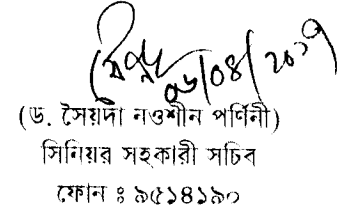 ০৬/০৪/২০১৭
(ড. সৈয়দা নওশীন পর্ণিনী)
সিনিয়র সহকারী সচিব
ফোন ঃ ৯৫১৪১৯০